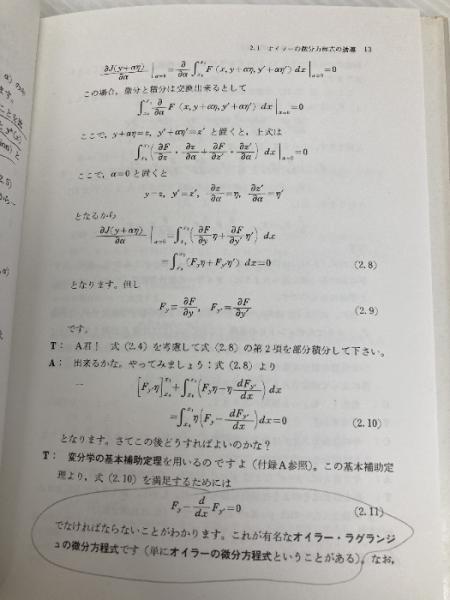 2.1 オイラーの微分方程式の誘導 13
∂J(y+αη)/∂α |α=0 = ∂/∂α ∫x₀^x₁ F(x, y+αη, y'+αη') dx |α=0 =0
この場合，微分と積分は交換出来るとして
∫x₀^x₁ ∂/∂α F (x, y+αη, y'+αη') dx |α=0 =0
ここで，y+αη=z, y'+αη'=z' と置くと，上式は
∫x₀^x₁ (∂F/∂z · ∂z/∂α + ∂F/∂z' · ∂z'/∂α) dx |α=0 =0
ここで，α=0 と置くと
y=z, y'=z', ∂z/∂α=η, ∂z'/∂α=η'
となるから
∂J(y+αη)/∂α |α=0 =∫x₀^x₁ (∂F/∂y η+∂F/∂y' η') dx
=∫x₀^x₁ (Fyη+Fy'η') dx=0 (2.8)
となります．但し
Fy=∂F/∂y, Fy'=∂F/∂y' (2.9)
です．
T： A君！ 式 (2.4) を考慮して式 (2.8) の第2項を部分積分して下さい．
A： 出来るかな．やってみましょう：式 (2.8) より
[Fy'η]x₀^x₁+∫x₀^x₁ (Fyη−η dFy'/dx) dx
=∫x₀^x₁ η(Fy− dFy'/dx) dx=0 (2.10)
となります．さてこの後どうすればよいのかな？
T： 変分学の基本補助定理を用いるのですよ（付録A参照）．この基本補助定
理より，式 (2.10) を満足するためには
Fy− d/dx Fy'=0 (2.11)
でなければならないことがわかります．これが有名なオイラー・ラグランジ
ュの微分方程式です（単にオイラーの微分方程式ということがある）．なお，